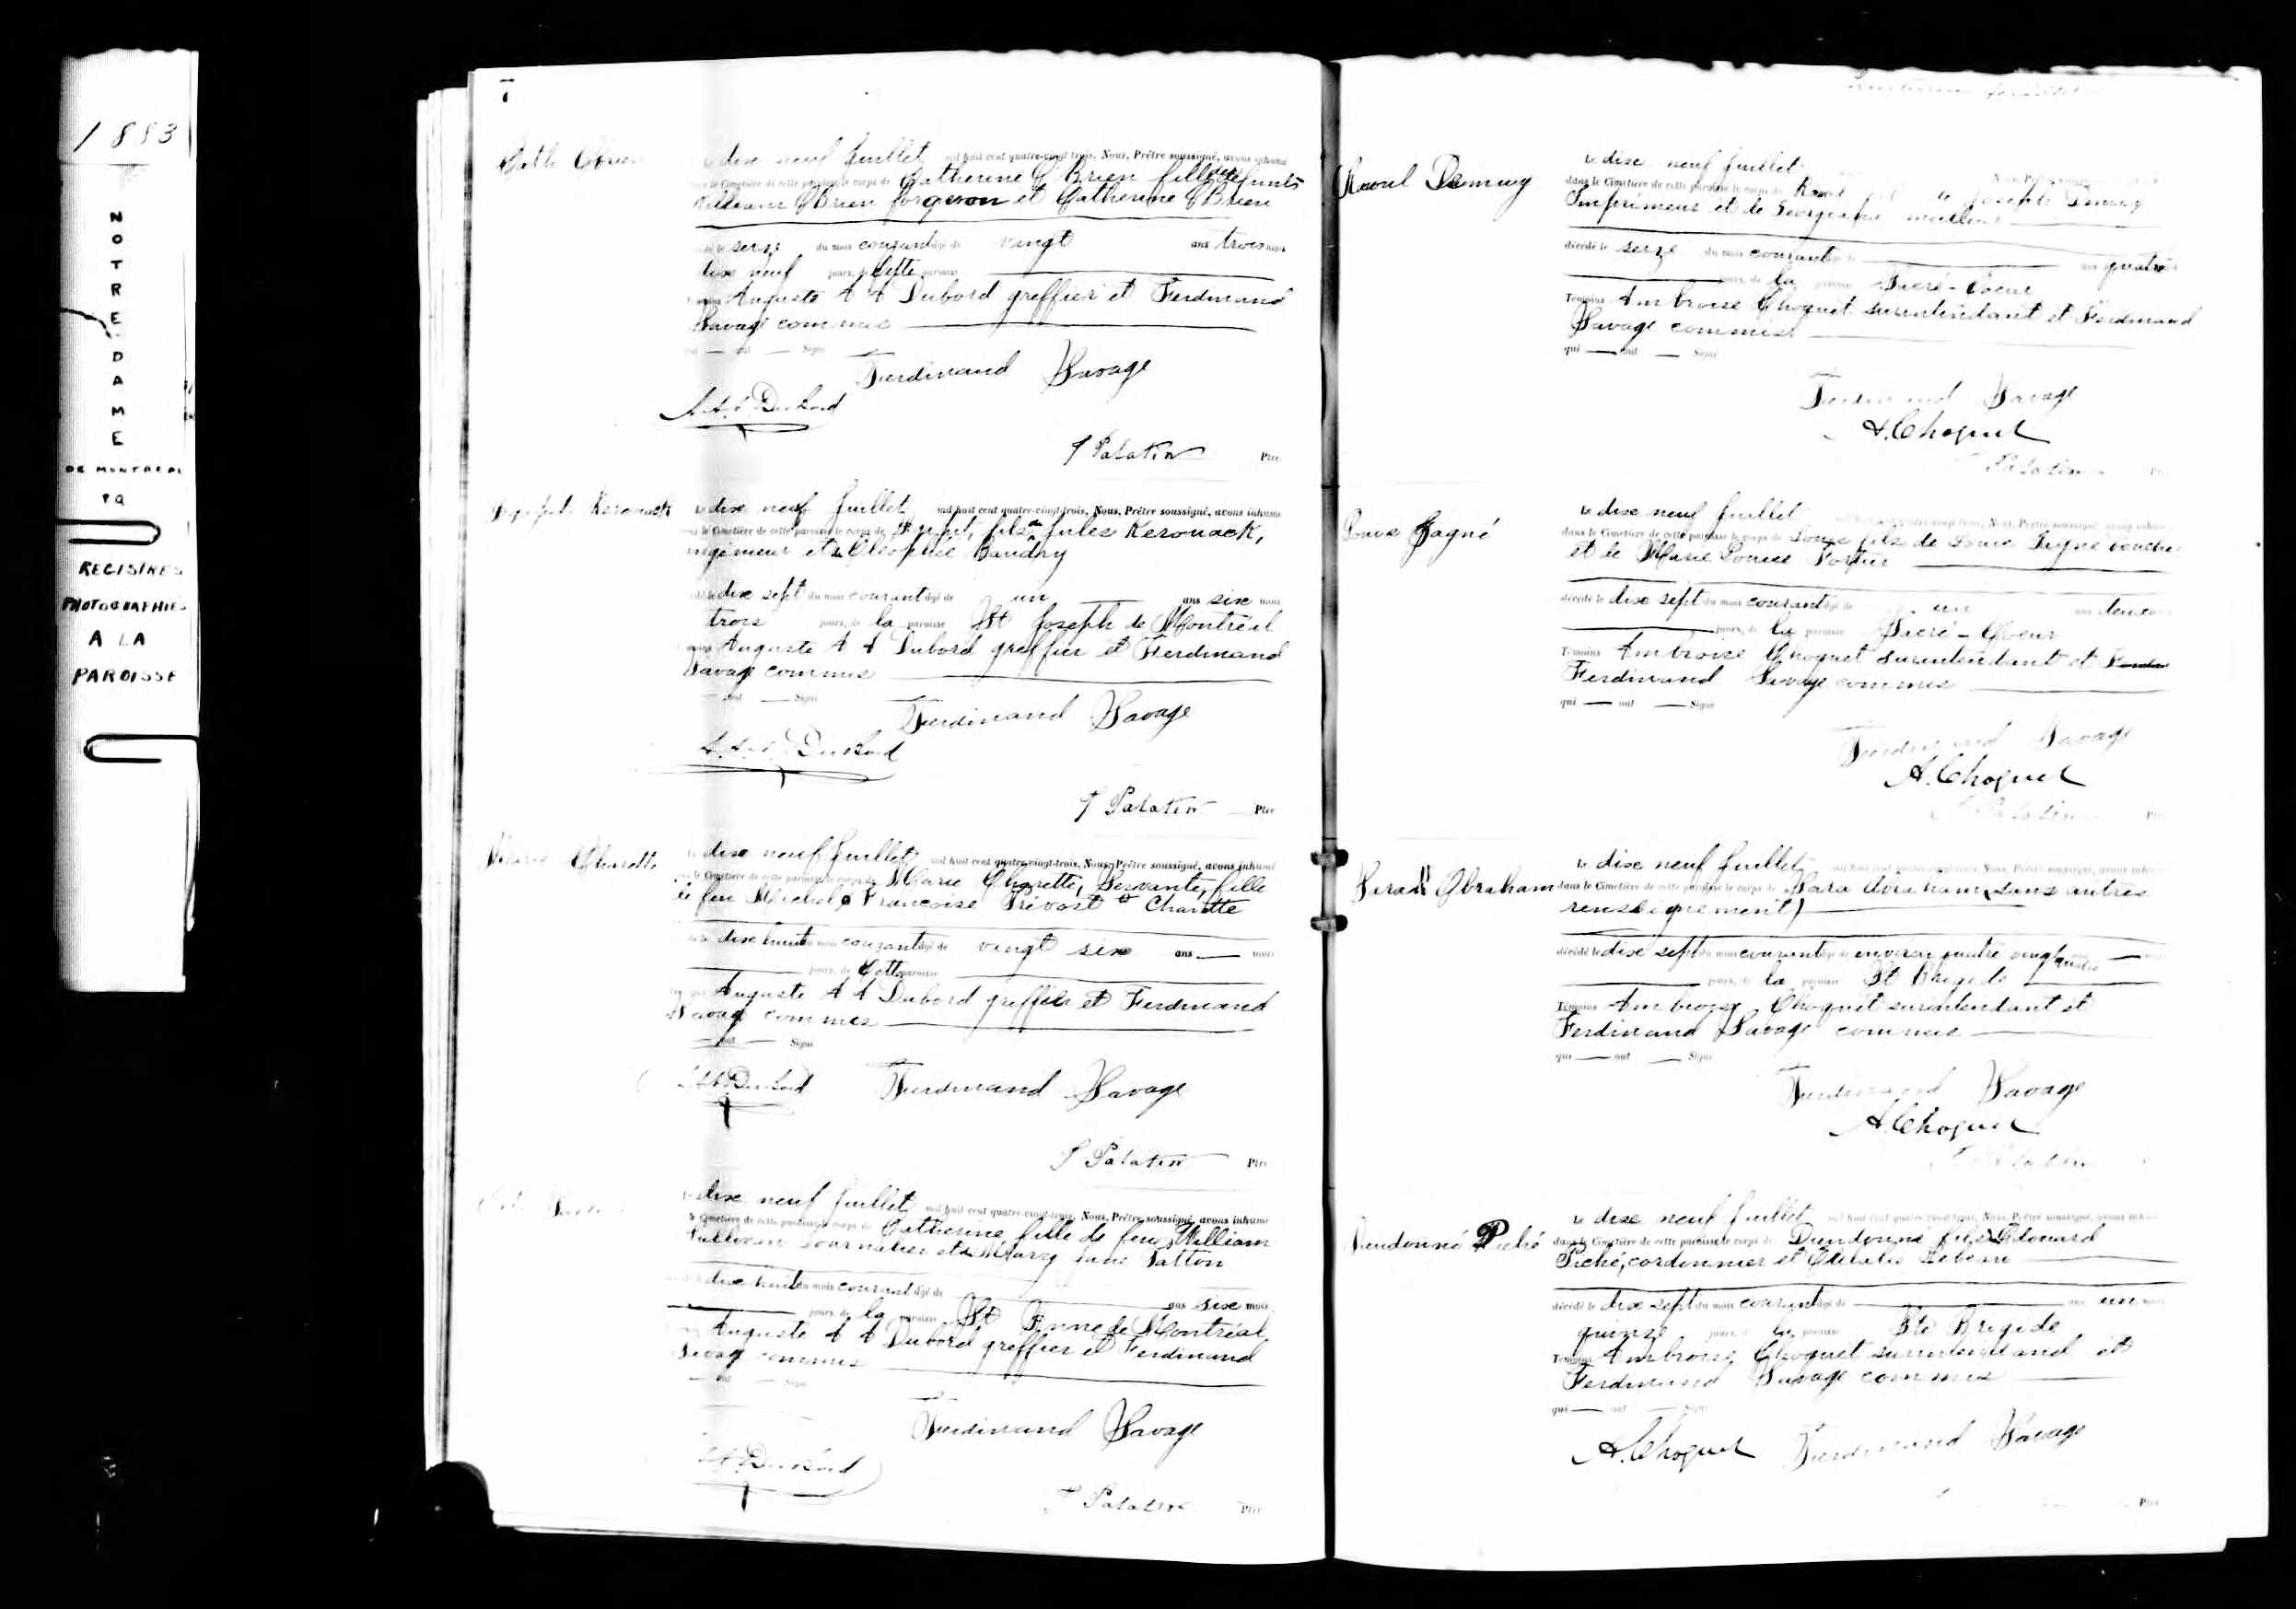 1883
NOTRE-DAME
DE MONTREAL
PQ
REGISTRES
PHOTOGRAPHIES
A LA
PAROISSE
7
dix neuf Juillet mil huit cent quatre-vingt-trois, Nous, Prêtre soussigné, avons inhumé
le Cimetière de cette paroisse le corps de Catherine O'Brien fille de défunts
William O'Brien forgeron et Catherine O'Brien
du mois courant âgé de vingt ans trois mois
dix neuf jours, de cette paroisse
Auguste A A Dubord greffier et Ferdinand
Savage commis
ont Signé
Ferdinand Savage
A.A.A. Dubord
Palatin Ptre
Kerouack
le dix neuf Juillet mil huit cent quatre-vingt-trois, Nous, Prêtre soussigné, avons inhumé
le Cimetière de cette paroisse le corps de fils de Jules Kerouack,
ingénieur et de Cléophée Baudry
dix sept du mois courant âgé de un ans six mois
trois jours, de la paroisse St Joseph de Montréal
Auguste A A Dubord greffier et Ferdinand
Savage commis
ont Signé
Ferdinand Savage
A.A.A. Dubord
Palatin Ptre
Charette
dix neuf Juillet mil huit cent quatre-vingt-trois, Nous, Prêtre soussigné, avons inhumé
le Cimetière de cette paroisse le corps de Marie Charette, Servante, fille
de feu Michel & Françoise Prévost Charette
dix huit du mois courant âgé de vingt six ans mois
jours, de Cette paroisse
Auguste A A Dubord greffier et Ferdinand
Savage commis
ont Signé
A.A.A. Dubord Ferdinand Savage
Palatin Ptre
dix neuf Juillet mil huit cent quatre-vingt-trois, Nous, Prêtre soussigné, avons inhumé
le Cimetière de cette paroisse le corps de Catherine fille de feu William
Sullivan Journalier et de Mary Jane
dix huit du mois courant âgé de ans six mois
jours, de la paroisse St Anne de Montréal
Auguste A A Dubord greffier et Ferdinand
Savage commis
ont Signé
Ferdinand Savage
A.A. Dubord
Palatin Ptre
Raoul
le dix neuf Juillet
dans le Cimetière de cette paroisse le corps de Raoul fils de Joseph
Imprimeur et de Georgiana
décédé le seize du mois courant quatre
jours, de la paroisse Sacré-Coeur
Témoins Ambroise Choquet surintendant et Ferdinand
Savage commis
qui ont Signé
Ferdinand Savage
A. Choquet
Palatin
Gagné
le dix neuf Juillet
dans le Cimetière de cette paroisse le corps de Louis fils de Louis
et de Marie Louise Fortier
décédé le dix sept du mois courant âgé de un ans
jours, de la paroisse Sacré-Coeur
Témoins Ambroise Choquet surintendant et
Ferdinand Savage commis
qui ont Signé
Ferdinand Savage
A. Choquet
Palatin
Sarah Abraham
le dix neuf Juillet
dans le Cimetière de cette paroisse le corps de Sara Abraham (sans autres
renseignement)
décédé le dix sept du mois courant âgé de environ quatre vingt quatre
jours, de la paroisse St Brigide
Témoins Ambroise Choquet surintendant et
Ferdinand Savage commis
qui ont Signé
Ferdinand Savage
A. Choquet
Palatin
Dieudonné Piché
le dix neuf Juillet
dans le Cimetière de cette paroisse le corps de Dieudonné fils Edouard
Piché, cordonnier et Lebeau
décédé le dix sept du mois courant âgé de ans un mois
quinze jours, de la paroisse Ste Brigide
Témoins Ambroise Choquet surintendant et
Ferdinand Savage commis
qui ont Signé
A. Choquet Ferdinand Savage
Ptre